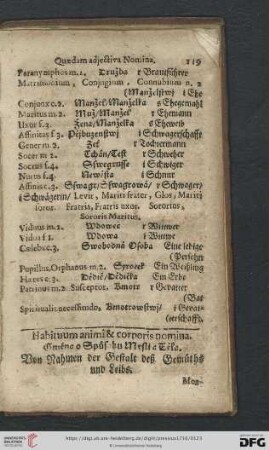 Quædam adjectiva Nomina. 119
Paranymphus m. 1. Družba r Brautführer
Matrimonium, Conjugium, Connubium n. 2
(Manželstwj i Ehe
Conjunx c. 3. Manžel/Manželka s Ehegemahl
Maritus m. 2. Muž/Manžel r Ehemann
Uxor f. 3. Žena/Manželka s Eheweib
Affinitas f. 3. Přjbuzenstwj i Schwagerschafft
Gener m. 2. Zeť r Tochtermann
Socer m. 2. Tchán/Test r Schweher
Socrus f. 4. i Schwiger
Nurus f. 4. Newěsta i Schnur
Affinis c. 3. Sswagr/Sswagrowá/ r Schwager/
i Schwägerin/ Levir, Mariti frater, Glos, Mariti
soror. Fratria, Fratris uxor. Sororius,
Sororis Maritus,
Viduus m. 2. Wdowec r Witwer
Vidua f. 1. Wdowa i Witwe
Cælebs c. 3. Swobodná Osoba Eine ledige
(Persohn
Pupillus, Orphanus m. 2. Sirotek Ein
Hæres c. 3. Dědic/Dědička Ein Erbe
Patrinus m. 2. Susceptor. Kmotr r Gevatter
Spiritualis necessitudo, Kmotrowstwj/ i Gevat-
(terschafft.
Habituum animi & corporis nomina.
Gména o Spůsobu Mysli a Těla.
Von Nahmen der Gestalt deß Gemüths
und Leibs.
http://digi.ub.uni-heidelberg.de/diglit/
UNIVERSITÄTS-
BIBLIOTHEK
HEIDELBERG
DFG